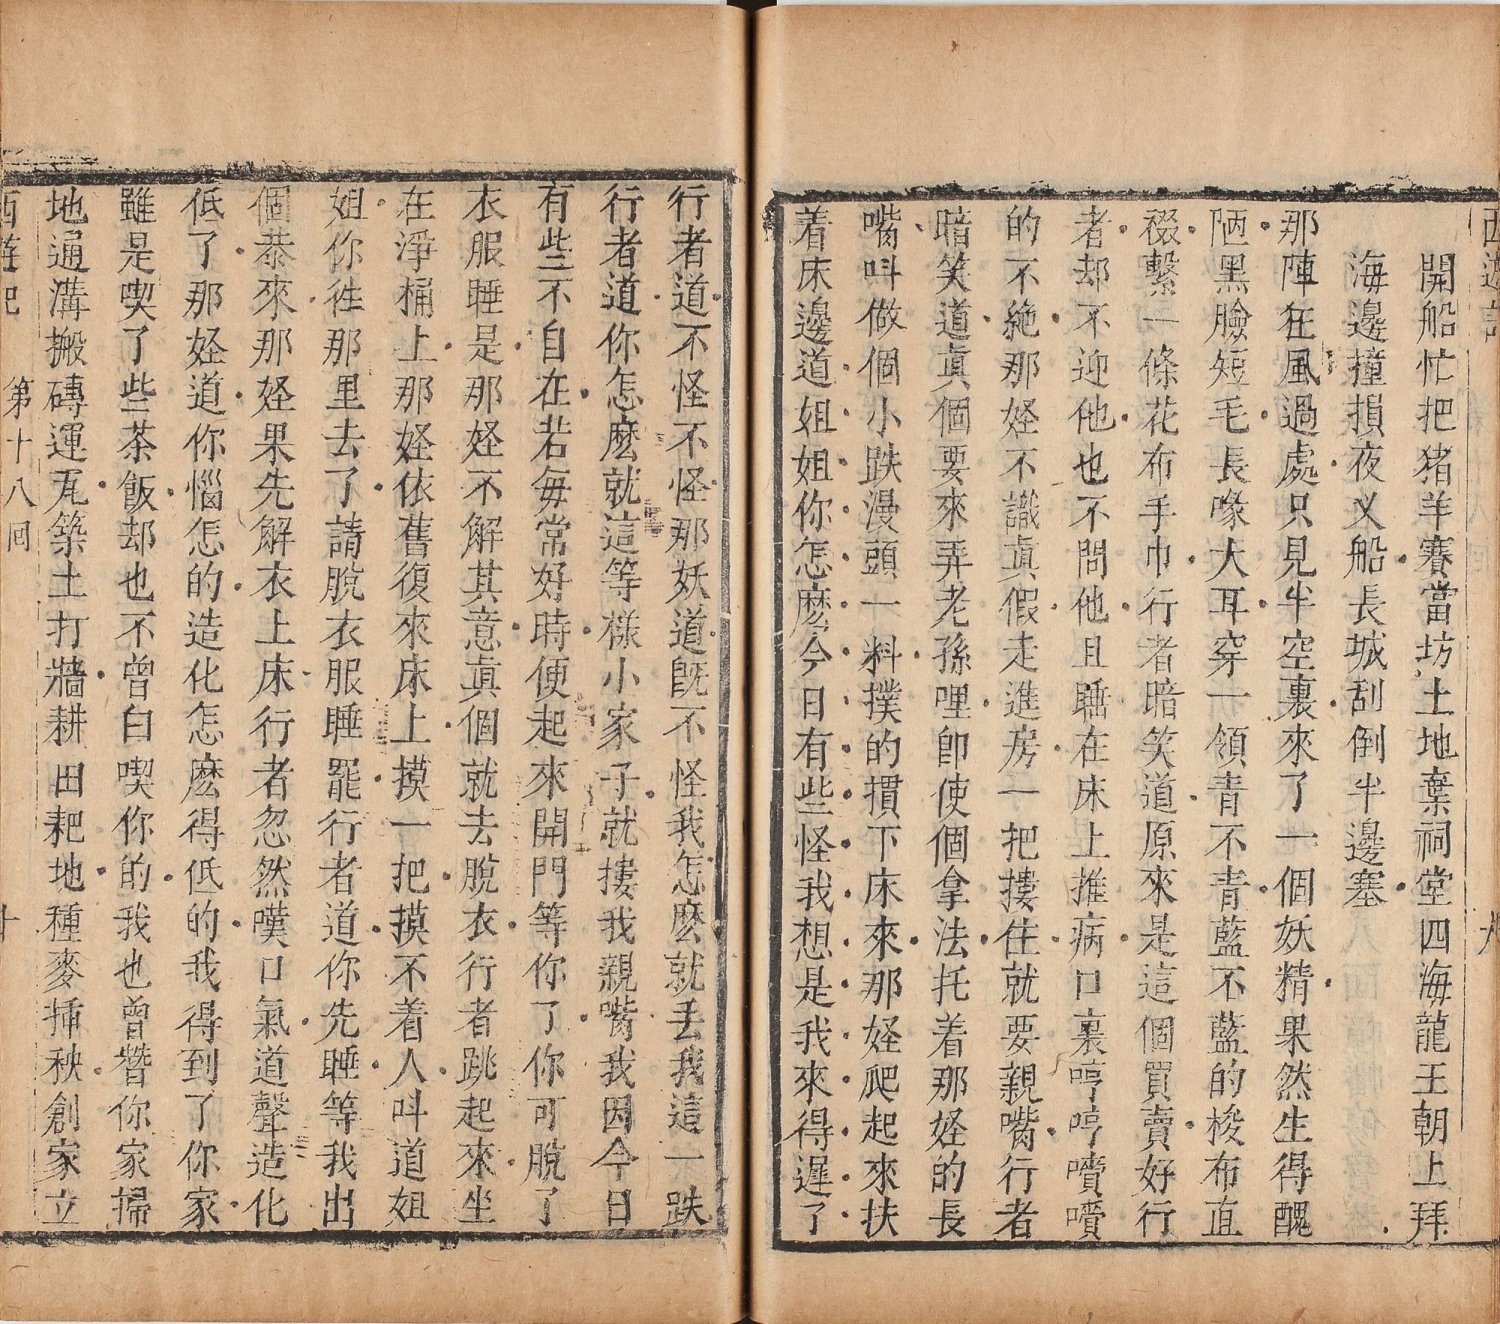 西遊記
九
開船忙把猪羊賽當坊土地棄祠堂四海龍王朝上拜
海邊撞損夜义船長城刮倒半邊塞
那陣狂風過處只見半空裏來了一個妖精果然生得醜
陋黑臉短毛長喙大耳穿一領青不青藍不藍的梭布直
裰繫一條花布手巾行者暗笑道原來是這個買賣好行
者却不迎他也不問他且睡在床上推病口裏哼哼嘖嘖
的不絶那妖不識眞假走進房一把摟住就要親嘴行者
暗笑道眞個要來弄老孫哩卽使個拿法托着那妖的長
嘴叫做個小跌漫頭一料撲的摜下床來那妖爬起來扶
着床邊道姐姐你怎麽今日有些怪我想是我來得遲了
行者道不怪不怪那妖道旣不怪我怎麽就丢我這一跌
行者道你怎麽就這等樣小家子就摟我親嘴我因今日
有些不自在若每常好時便起來開門等你了你可脫了
衣服睡是那妖不解其意眞個就去脫衣行者跳起來坐
在淨桶上那妖依舊復來床上摸一把摸不着人叫道姐
姐你徃那里去了請脫衣服睡罷行者道你先睡等我出
個恭來那妖果先解衣上床行者忽然嘆口氣道聲造化
低了那妖道你惱怎的造化怎麽得低的我得到了你家
雖是喫了些茶飯却也不曾白喫你的我也曾替你家掃
地通溝搬磚運瓦築土打牆耕田耙地種麥揷秧創家立
西遊記
第十八回
十